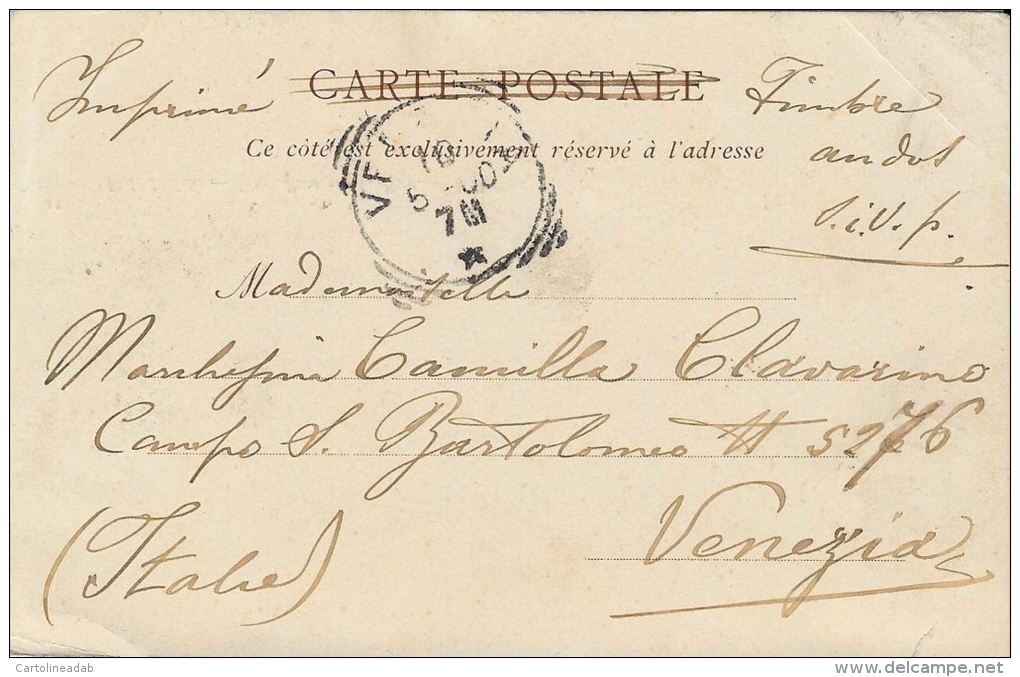 Imprimé CARTE POSTALE Timbre
Ce côté est exclusivement réservé à l'adresse
au dos
s.i.v.p.
5 00
7 M
Mademoiselle
Camilla Clavarino
Campo S. Bartolomeo # 5276
Venezia
(Italie)
Cartolineadab
www.delcampe.net